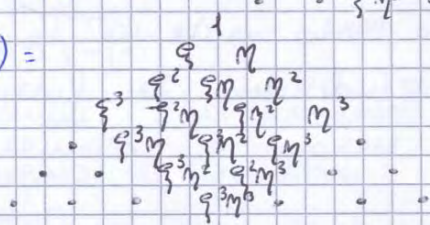 1
) = ξ η
ξ² ξη η²
ξ³ ξ²η ξη² η³
ξ³η ξ²η² ξη³
ξ³η² ξ²η³
ξ³η³